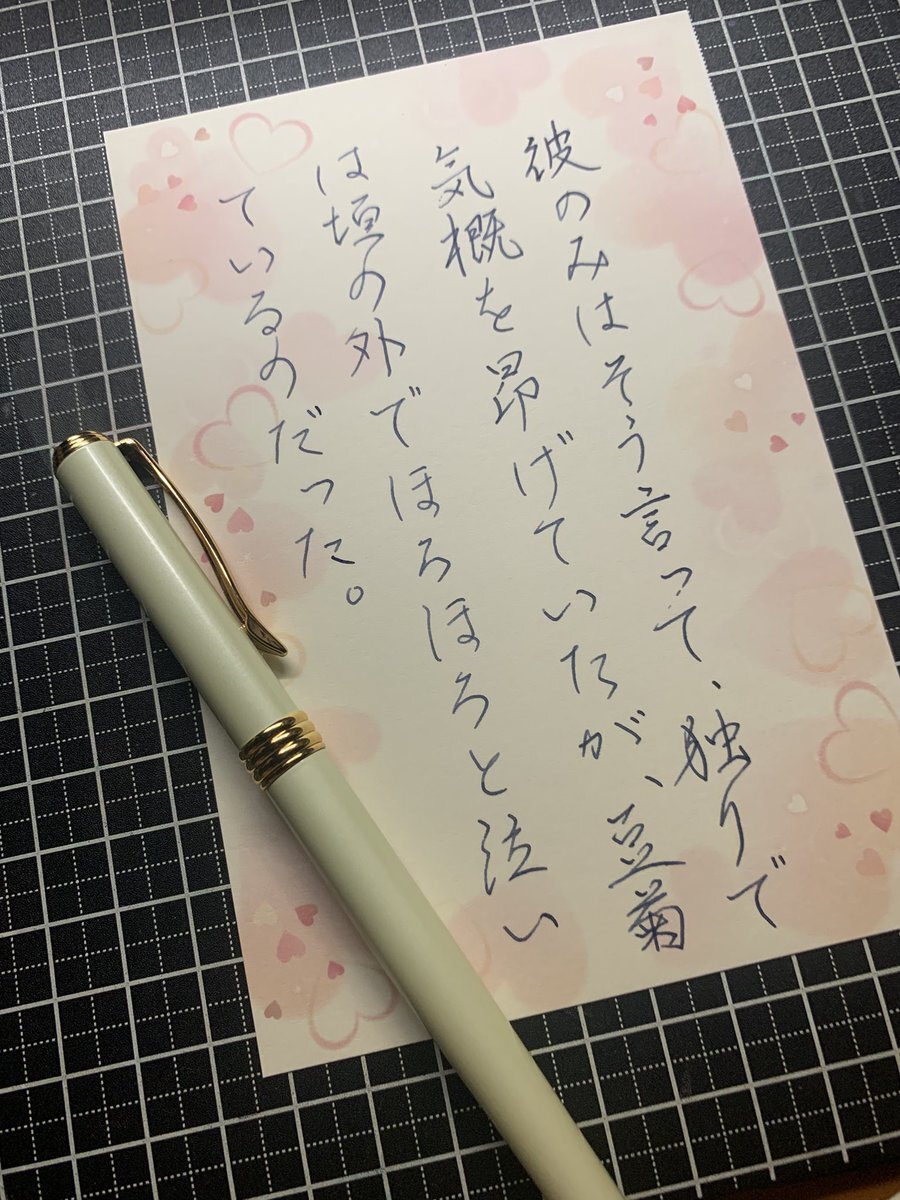 彼のみはそう言って、独りで
気概を昂げていたが、豆菊
は垣の外でほろほろと泣い
ているのだった。